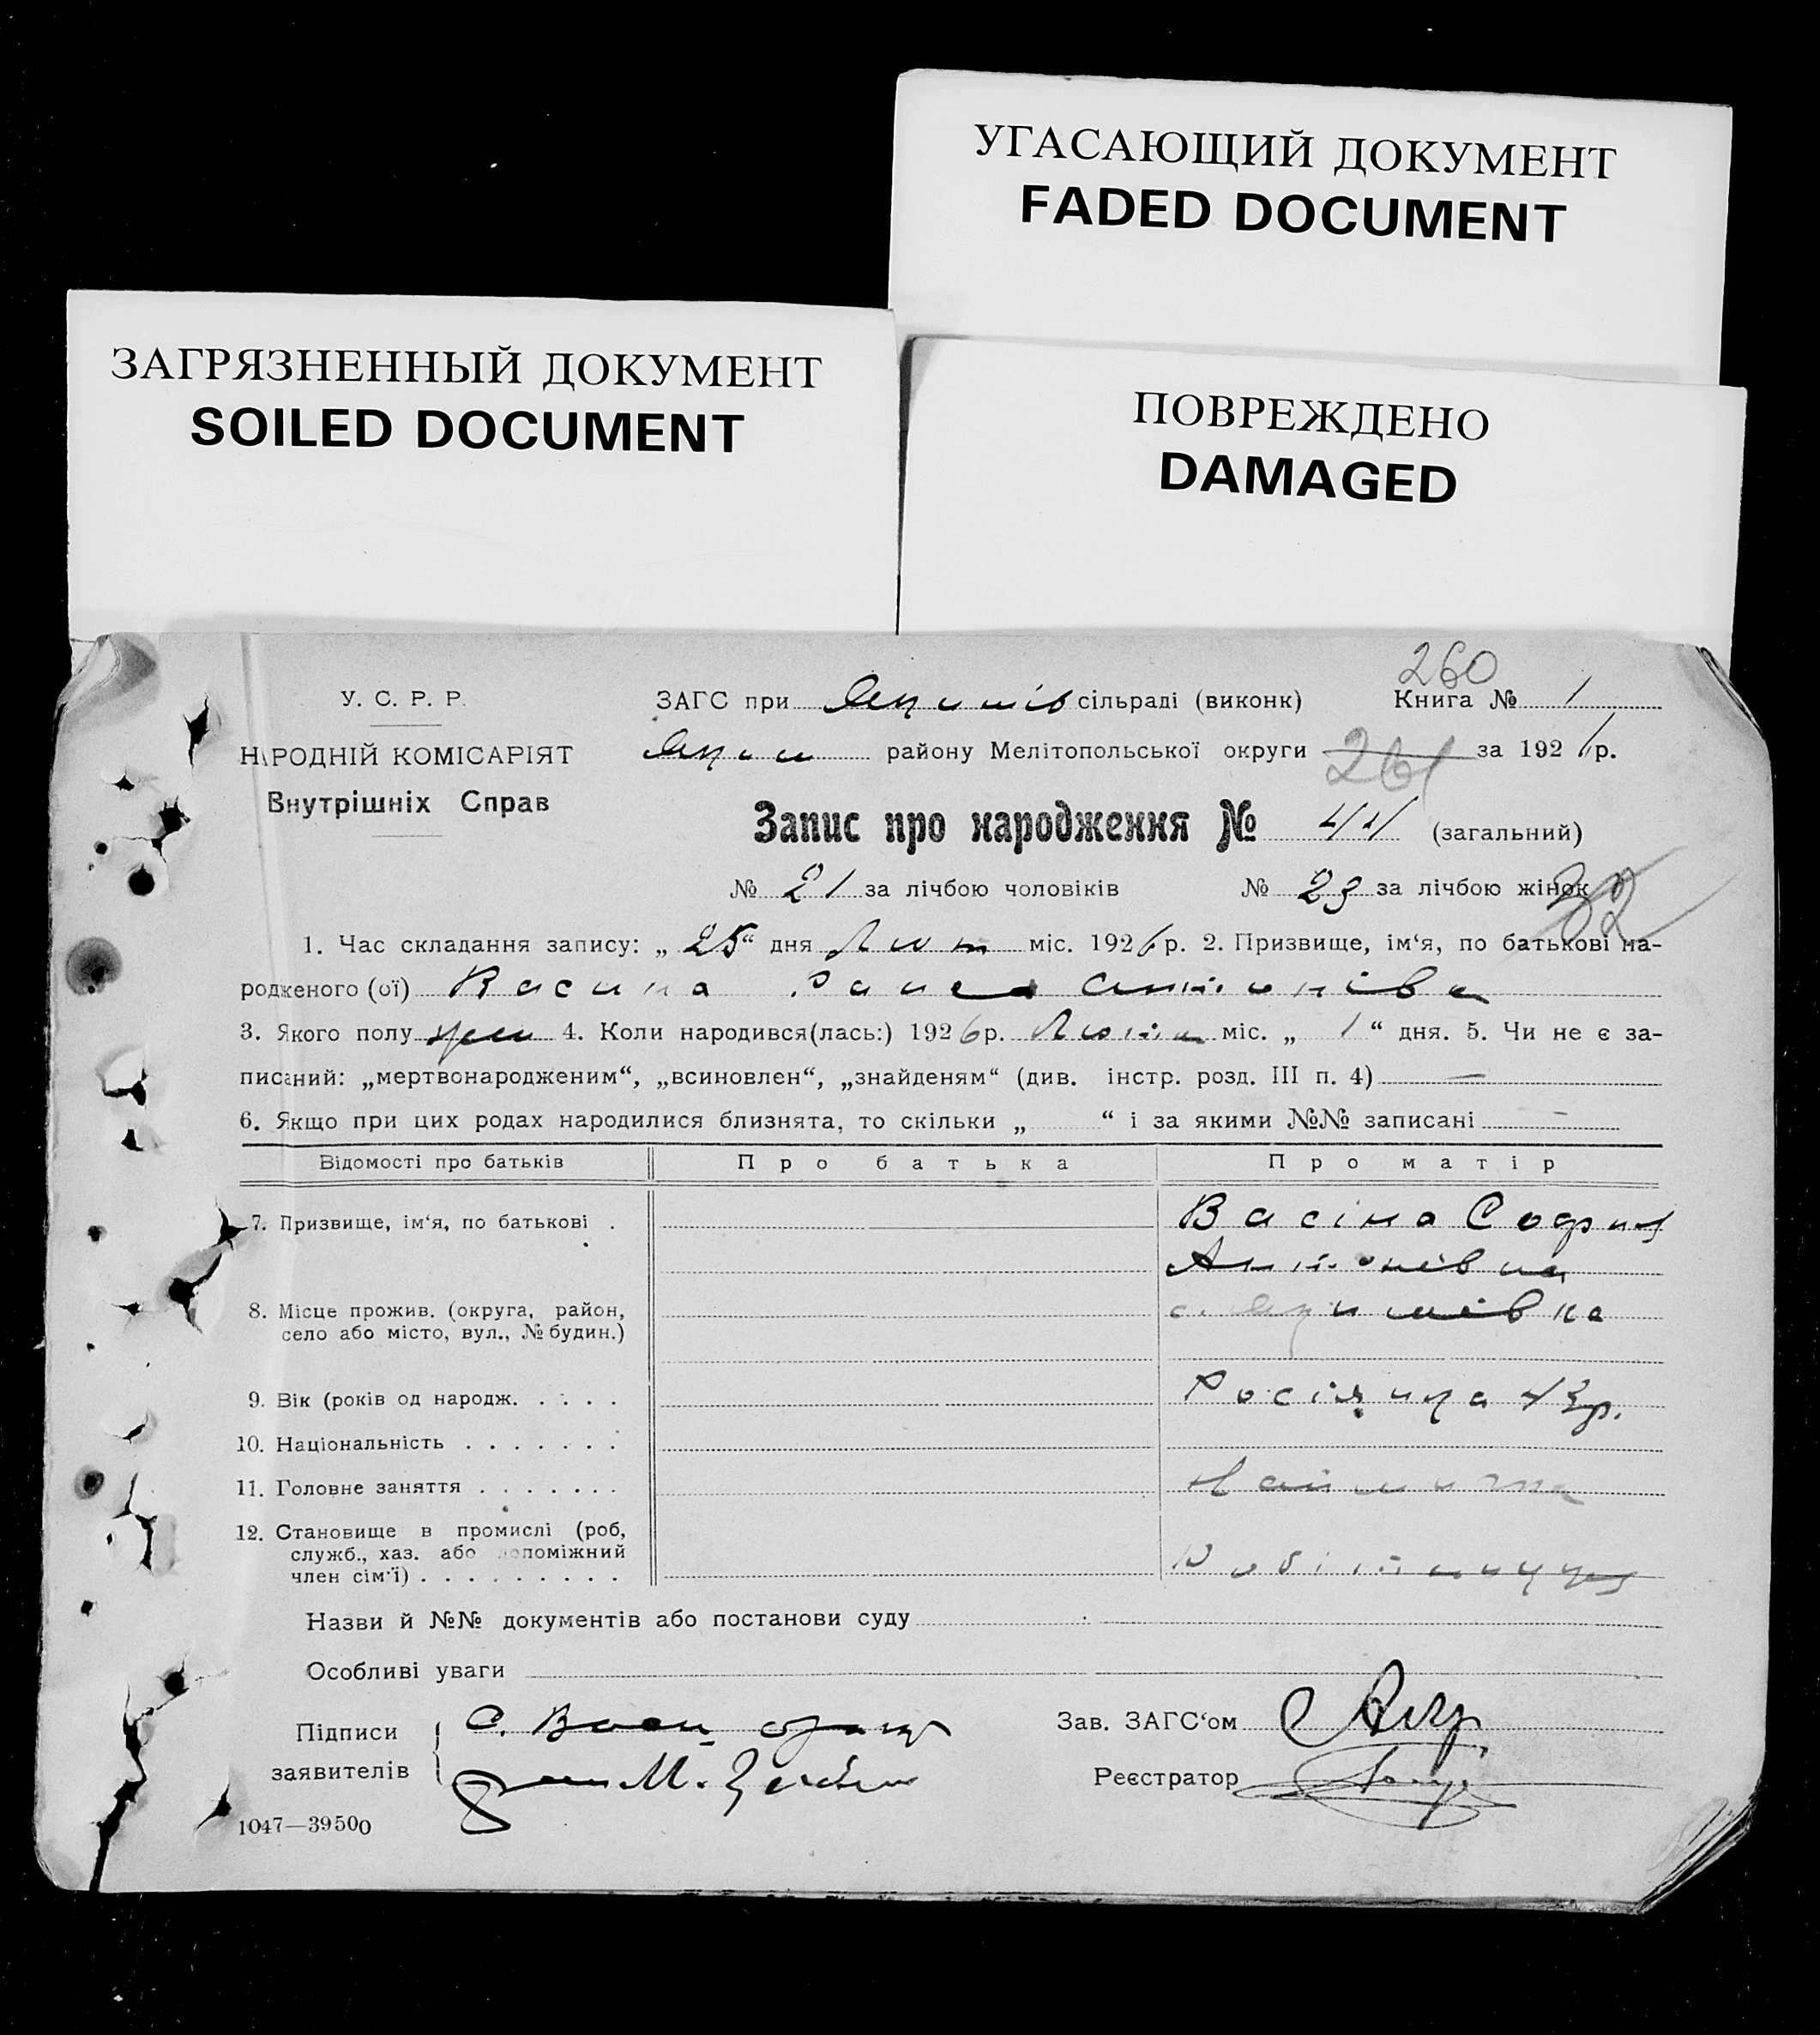 УГАСАЮЩИЙ ДОКУМЕНТ
FADED DOCUMENT
ЗАГРЯЗНЕННЫЙ ДОКУМЕНТ
SOILED DOCUMENT
ПОВРЕЖДЕНО
DAMAGED
260
У. С. Р. Р. ЗАГС при Якимів сільраді (виконк) Книга № 1
НАРОДНІЙ КОМІСАРІЯТ Яким району Мелітопольської округи 261 за 1926 р.
Внутрішніх Справ
Запис про народження № 44 (загальний)
№ 21 за лічбою чоловіків № 23 за лічбою жінок
32
1. Час складання запису: „ 25 “ дня Лют міс. 1926 р. 2. Призвище, ім‘я, по батькові на-
родженого (ої) Васина Раиса Антонівна
3. Якого полу жен 4. Коли народився(лась:) 1926 р. Лютий міс. „ 1 “ дня. 5. Чи не є за-
писаний: „мертвонародженим“, „всиновлен“, „знайденям“ (див. інстр. розд. III п. 4) —
6. Якщо при цих родах народилися близнята, то скільки „ “ і за якими №№ записані —
Відомості про батьків Про батька Про матір
7. Призвище, ім‘я, по батькові . Васіна София
Антонівна
8. Місце прожив. (округа, район, с. Якимівка
село або місто, вул., № будин.)
9. Вік (років од народж. . . . . Росіянка 43 р.
10. Національність . . . . . . .
11. Головне заняття . . . . . . . Наймичка
12. Становище в промислі (роб,
служб., хаз. або допоміжний
член сім‘ї) . . . . . . . . . Робітниця
Назви й №№ документів або постанови суду
Особливі уваги
Підписи С. Зав. ЗАГС‘ом
заявителів М. Реєстратор
1047—39500